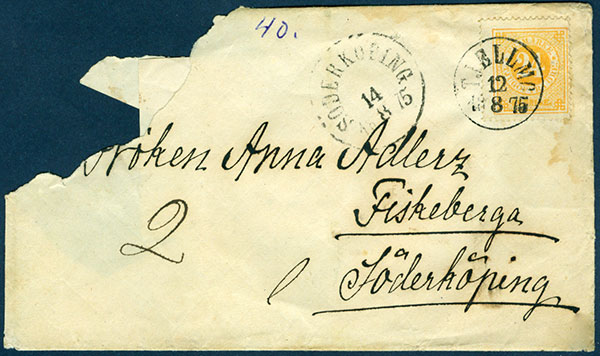 40.
SÖDERKÖPING
14
8
12
8 75
Fröken Anna Adlerz
2
Fiskeberga
Söderköping